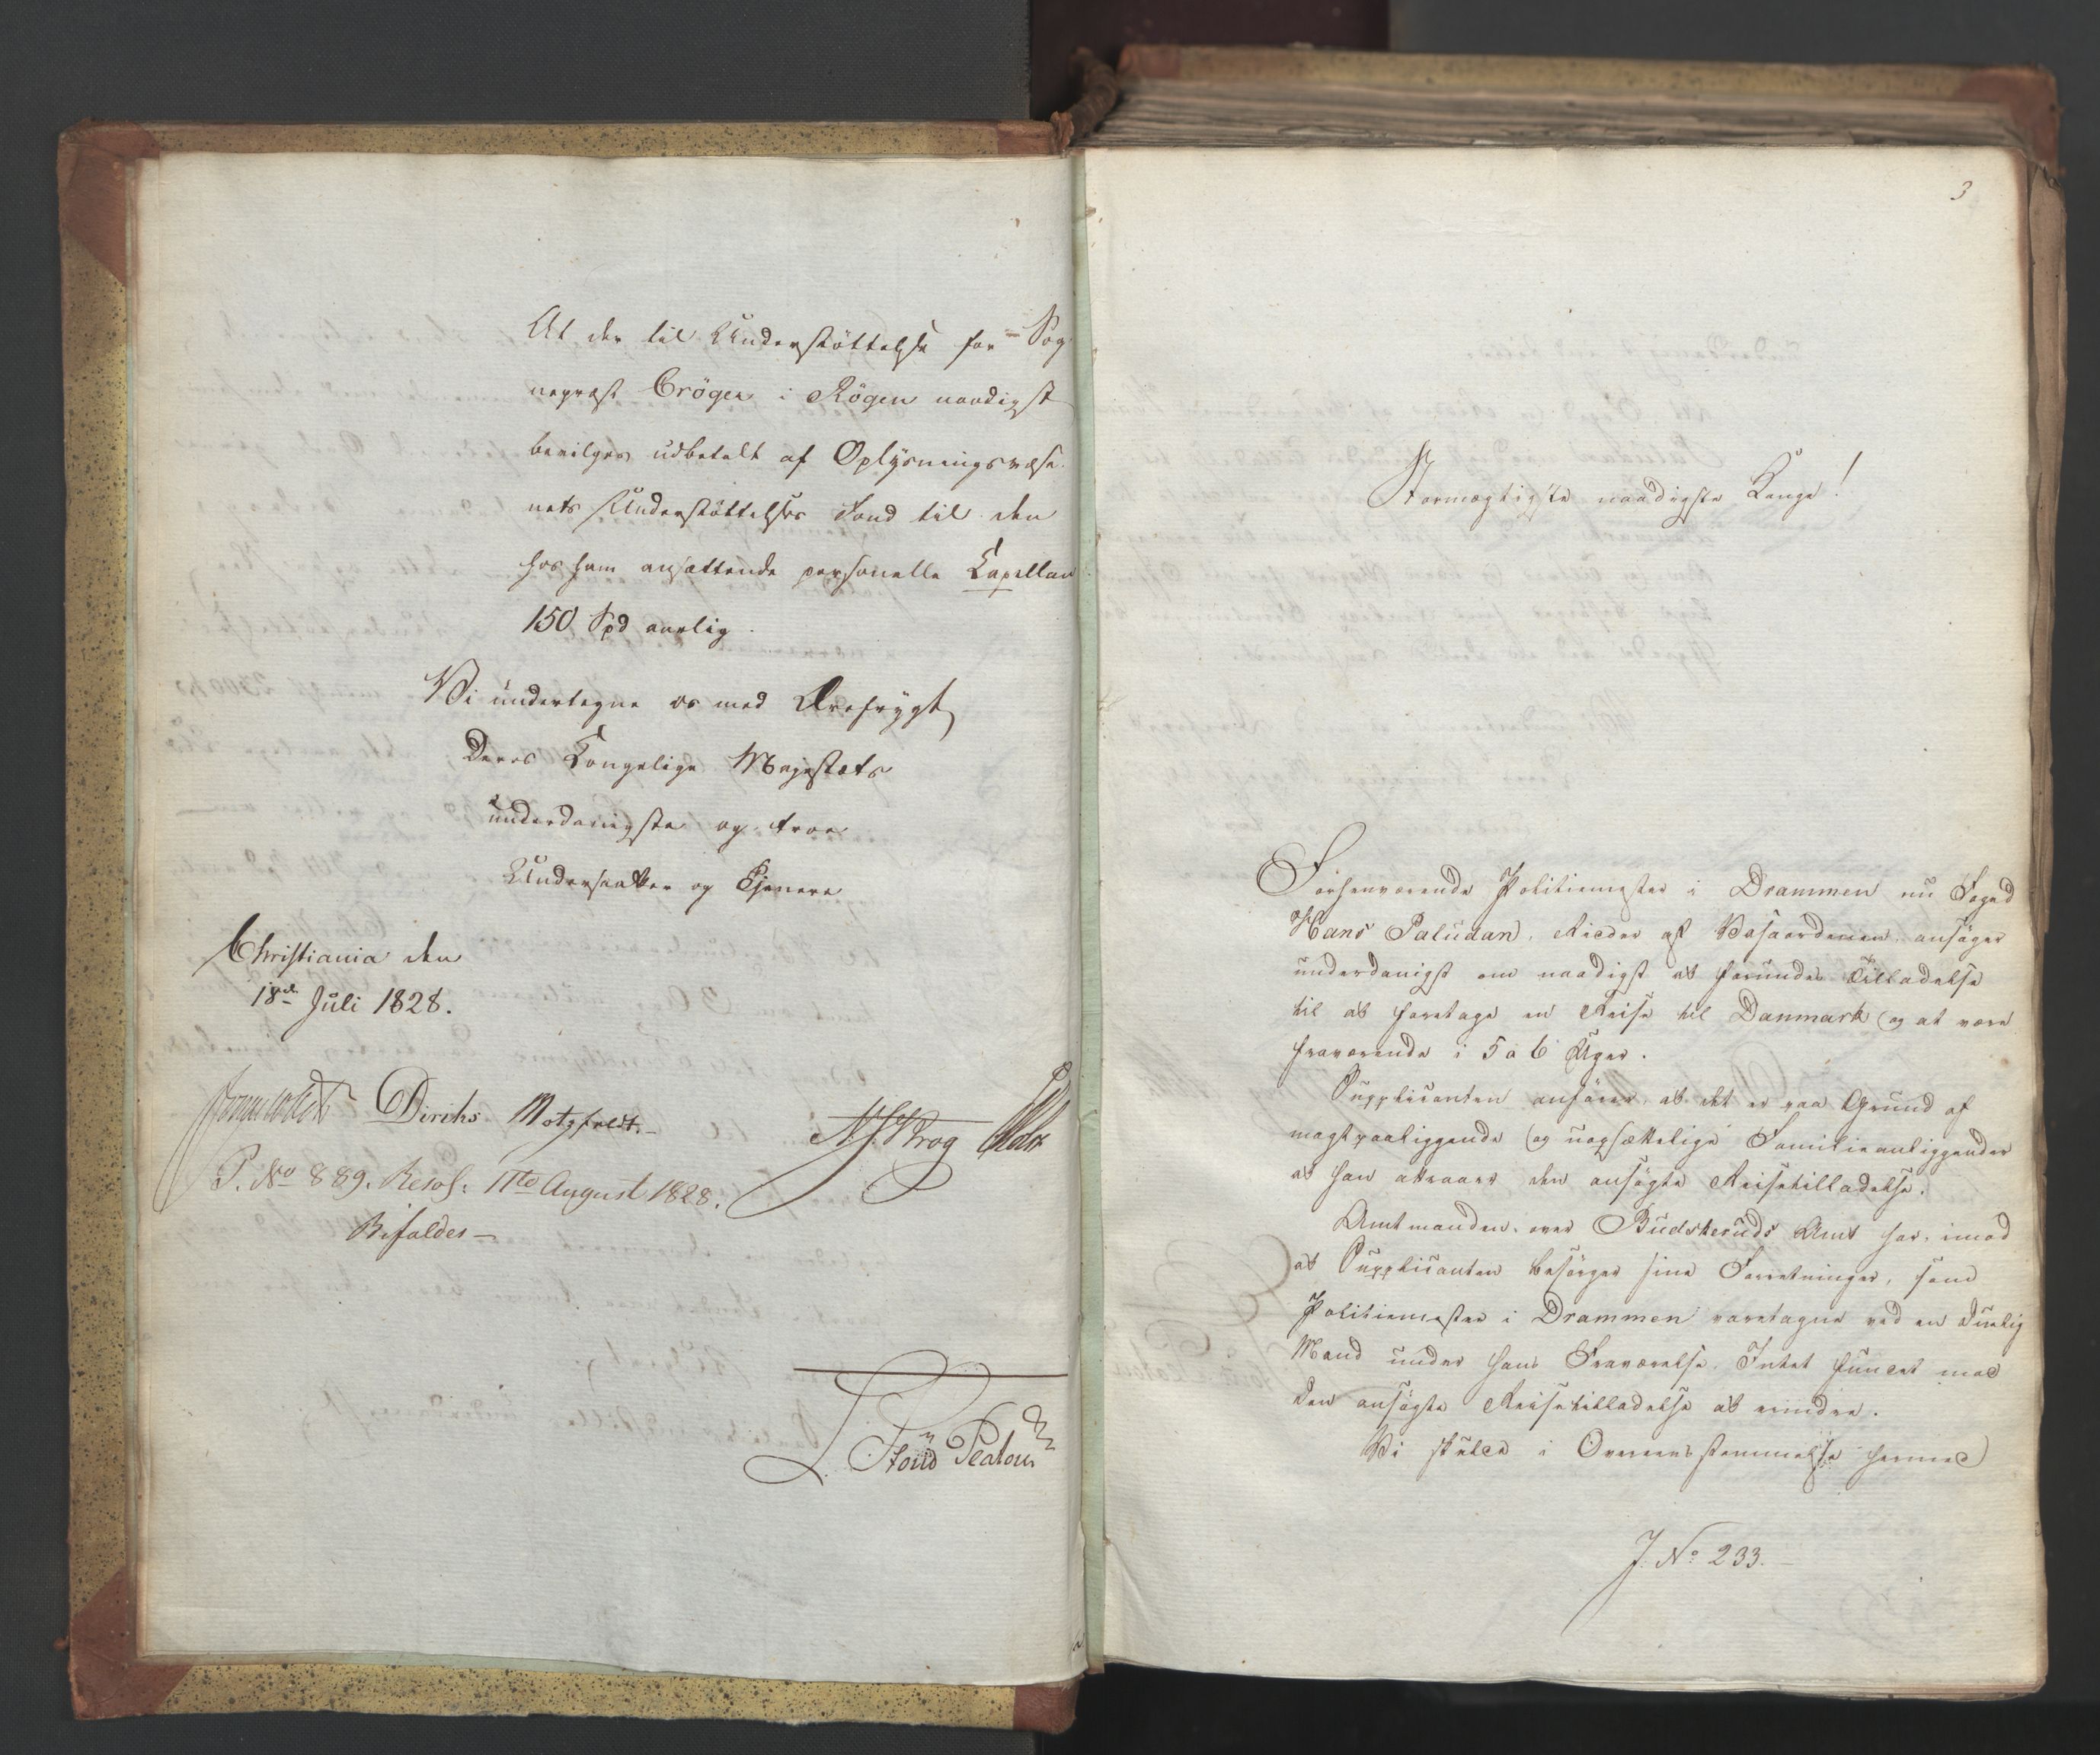 At der til Understöttelse for Sog
nepræst Cröger i Rögen naadigst
bevilges udbetalt af Oplysningsvæse
nets Understöttelses Fond til den
hos ham ansættende personelle Capellan
150 Spd aarlig.
Vi undertegne os med Ærefrygt
Deres Kongelige Majestæts
underdanigste og troe
Undersaatter og Tjenere
Christiania den
18de Juli 1828.
Diriks Motzfeldt.
P. No 889. Resol: 11te August 1828.
Bifaldes
3
Stormægtigste naadigste Konge!
Forhenværende Politiemester i Drammen nu Foged
Hans Paludan, Ridder af Vasaordenen, ansöger
underdanigst om naadigst at forundes Tilladelse
til at foretage en Reise til Danmark og at være
fraværende i 5 a 6 Uger.
Supplicanten anförer, at det er paa Grund af
magtpaaliggende og uopsættelige Familieanliggender
at han attraaer den ansögte Reisetilladelse.
Amtmanden over Budskeruds Amt har, imod
at Supplicanten besörger sine Forretninger, som
Politiemester i Drammen varetagne ved en duelig
Mand under hans Fraværelse, Intet fundet mod
den ansögte Reisetilladelse at erindre.
Vi skulle i Overeensstemmelse hermed
J. No 233.